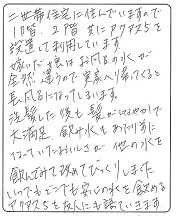 二世帯住宅に住んでいますので
1階、2階共にアクアス5を
設置して利用しています。
嫁いだ娘はお風呂の水が
全然違うので実家へ帰ってくると
長風呂になってしまいます。
洗髪した後も髪がしなやかで
大満足 飲み水もあたりまえに
なっていたおいしさが 他の水を
飲んでみて改めてびっくりしました
いつでもどこでも安心の水を飲める
アクアス5を友人にも語っていきます